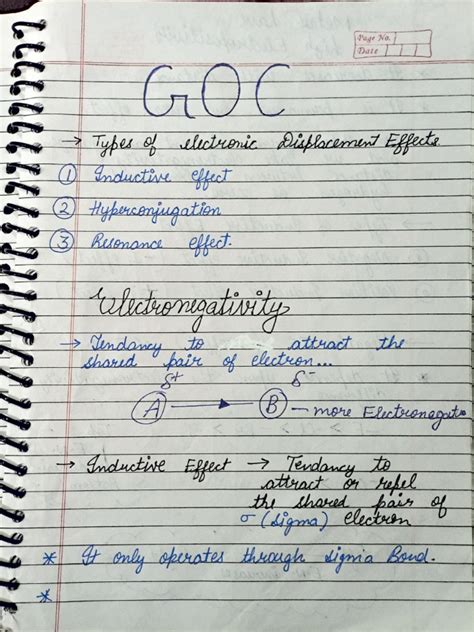 Page No.
Date
GOC
→ Types of electronic Displacement Effects
① Inductive effect
② Hyperconjugation
③ Resonance effect.
Electronegativity
→ Tendancy to attract the
shared pair of electron...
δ+ δ-
A → B - more Electronegat
→ Inductive Effect → Tendancy to
attract or repel
the shared pair of
σ (sigma) electron
* It only operates through sigma Bond.
*